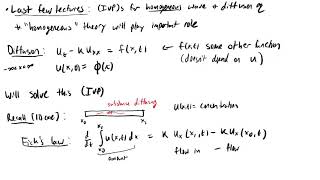 • Last few lectures: (IVP)s for homogeneous wave + diffusion eq
• "homogeneous" theory will play important role
Diffusion: u_t - k u_xx = f(x,t) ← f(x,t) some other function
-∞<x<∞ u(x,0) = φ(x) (doesn't depend on u)
Will solve this (IVP)
substance diffusing
Recall (1D case): u(x,t) = concentration
x_0 x_1
Fick's law: d/dt ∫ u(x,t) dx = k u_x(x_1,t) - k u_x(x_0,t)
x_0 flow in - flow
amount